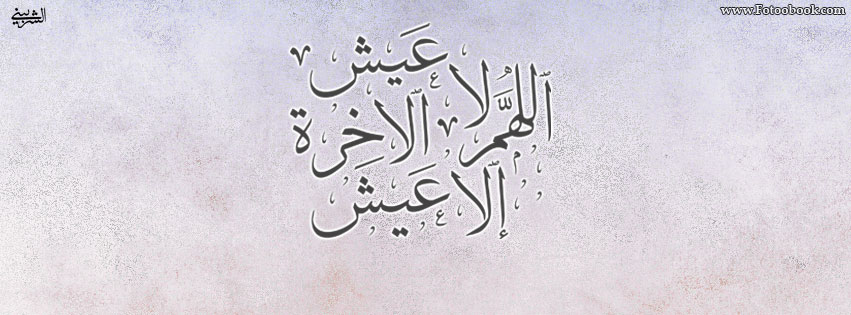 الشربيني
www.Fotoobook.com
اللهم لا عيش
إلا عيش
الاخرة